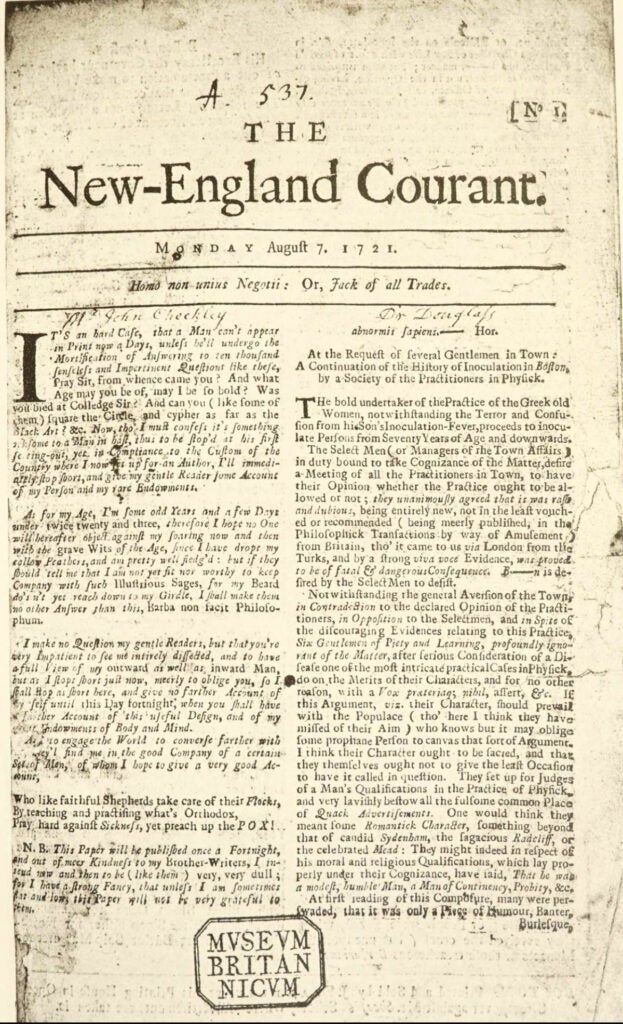 A. 537.
[No 1.
THE
New-England Courant.
MONDAY Auguſt 7. 1721.
Homo non unius Negotii: Or, Jack of all Trades.
Mr. John Checkley
IT'S an hard Caſe, that a Man can't appear
in Print now a Days, unleſs he'll undergo the
Mortification of Anſwering to ten thouſand
ſenſeleſs and Impertinent Queſtions like theſe,
Pray Sir, from whence came you? And what
Age may you be of, may I be ſo bold? Was
you bred at Colledge Sir? And can you (like ſome of
them) ſquare the Circle, and cypher as far as the
Black Art? &c. Now, tho' I muſt confeſs it's ſomething
irkſome to a Man in haſt, thus to be ſtop'd at his firſt
ſetting-out, yet in Compliance to the Cuſtom of the
Country where I now ſet up for an Author, I'll immedi-
ately ſtop ſhort, and give my gentle Reader ſome Account
of my Perſon and my rare Endowments.
As for my Age, I'm ſome odd Years and a few Days
under twice twenty and three, therefore I hope no One
will hereafter object againſt my ſoaring now and then
with the grave Wits of the Age, ſince I have dropt my
callow Feathers, and am pretty well fledg'd: but if they
ſhould tell me that I am not yet fit nor worthy to keep
Company with ſuch Illuſtrious Sages, for my Beard
do's n't yet reach down to my Girdle, I ſhall make them
no other Anſwer than this, Barba non facit Philoſo-
phum.
I make no Queſtion my gentle Readers, but that you're
very Impatient to ſee me intirely diſſected, and to have
a full View of my outward as well as inward Man,
but as I ſtopt ſhort juſt now, meerly to oblige you, ſo I
ſhall ſtop as ſhort here, and give no farther Account of
my ſelf until this Day fortnight, when you ſhall have
a farther Account of this uſeful Deſign, and of my
great Endowments of Body and Mind.
to engage the World to converſe farther with
find me in the good Company of a certain
Set of Men, of whom I hope to give a very good Ac-
count,
Who like faithful Shepherds take care of their Flocks,
By teaching and practiſing what's Orthodox,
Pray hard againſt Sickneſs, yet preach up the POX!
N. B. This Paper will be publiſhed once a Fortnight,
and out of meer Kindneſs to my Brother-Writers, I in-
tend now and then to be (like them) very, very dull;
for I have a ſtrong Fancy, that unleſs I am ſometimes
flat and low, this Paper will not be very grateful to
them.
Dr Douglaſs
abnormis ſapiens.— Hor.
At the Requeſt of ſeveral Gentlemen in Town:
A Continuation of the Hiſtory of Inoculation in Boſton,
by a Society of the Practitioners in Phyſick.
THe bold undertaker of the Practice of the Greek old
Women, notwithſtanding the Terror and Confu-
ſion from his Son's Inoculation-Fever, proceeds to inocu-
late Perſons from Seventy Years of Age and downwards.
The Select Men (or Managers of the Town Affairs)
in duty bound to take Cognizance of the Matter, deſire
a Meeting of all the Practitioners in Town, to have
their Opinion whether the Practice ought to be al-
lowed or not; they unanimouſly agreed that it was raſh
and dubious, being entirely new, not in the leaſt vouch-
ed or recommended (being meerly publiſhed, in the
Philoſophick Tranſactions by way of Amuſement)
from Britain, tho' it came to us via London from the
Turks, and by a ſtrong viva voce Evidence, was proved
to be of fatal & dangerous Conſequence. B——n is de-
ſired by the Select Men to deſiſt.
Notwithſtanding the general Averſion of the Town,
in Contradiction to the declared Opinion of the Practi-
tioners, in Oppoſition to the Selectmen, and in Spite of
the diſcouraging Evidences relating to this Practice,
Six Gentlemen of Piety and Learning, profoundly igno-
rant of the Matter, after ſerious Conſideration of a Di-
ſeaſe one of the moſt intricate practical Caſes in Phyſick,
do on the Merits of their Characters, and for no other
reaſon, with a Vox prœteriag; nihil, aſſert, &c. If
this Argument, viz. their Character, ſhould prevail
with the Populace (tho' here I think they have
miſſed of their Aim) who knows but it may oblige
ſome prophane Perſon to canvas that ſort of Argument.
I think their Character ought to be ſacred, and that
they themſelves ought not to give the leaſt Occaſion
to have it called in queſtion. They ſet up for Judges
of a Man's Qualifications in the Practice of Phyſick,
and very laviſhly beſtow all the fulſome common Place
of Quack Advertiſements. One would think they
meant ſome Romantick Character, ſomething beyond
that of candid Sydenham, the ſagacious Radcliff, or
the celebrated Mead: They might indeed in reſpect of
his moral and religious Qualifications, which lay pro-
perly under their Cognizance, have ſaid, That he was
a modeſt, humble Man, a Man of Continency, Probity, &c.
At firſt reading of this Compoſure, many were per-
ſwaded, that it was only a Piece of Humour, Banter,
Burleſque,
MVSEVM
BRITAN
NICVM